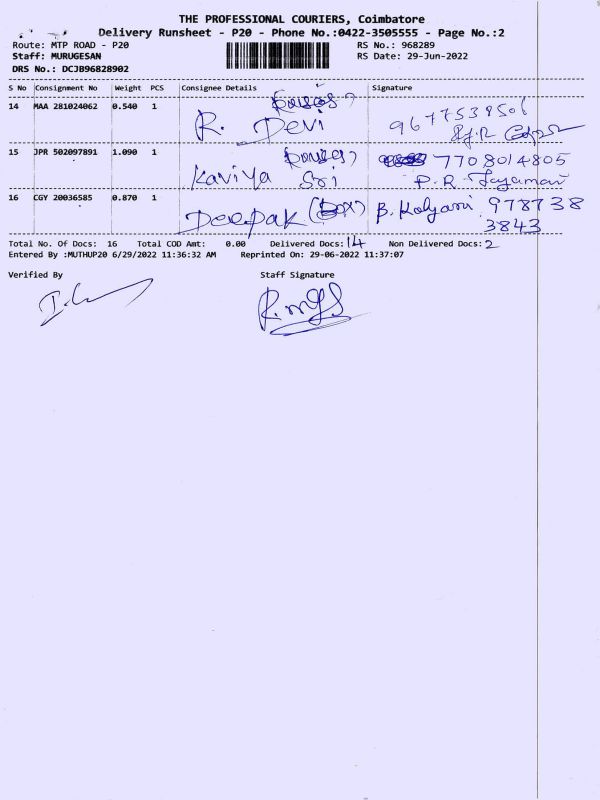 THE PROFESSIONAL COURIERS, Coimbatore
Delivery Runsheet - P20 - Phone No.:0422-3505555 - Page No.:2
Route: MTP ROAD - P20 RS No.: 968289
Staff: MURUGESAN RS Date: 29-Jun-2022
DRS No.: DCJB96828902
S No Consignment No Weight PCS Consignee Details Signature
14 MAA 281024062 0.540 1
R. Devi 9677539506
15 JPR 502097891 1.090 1 7708014805
Kaviya Sri P.R. Jayamani
16 CGY 20036585 0.870 1 Deepak (box) B. Kalyani 978738
3843
Total No. Of Docs: 16 Total COD Amt: 0.00 Delivered Docs: 14 Non Delivered Docs: 2
Entered By :MUTHUP20 6/29/2022 11:36:32 AM Reprinted On: 29-06-2022 11:37:07
Verified By Staff Signature